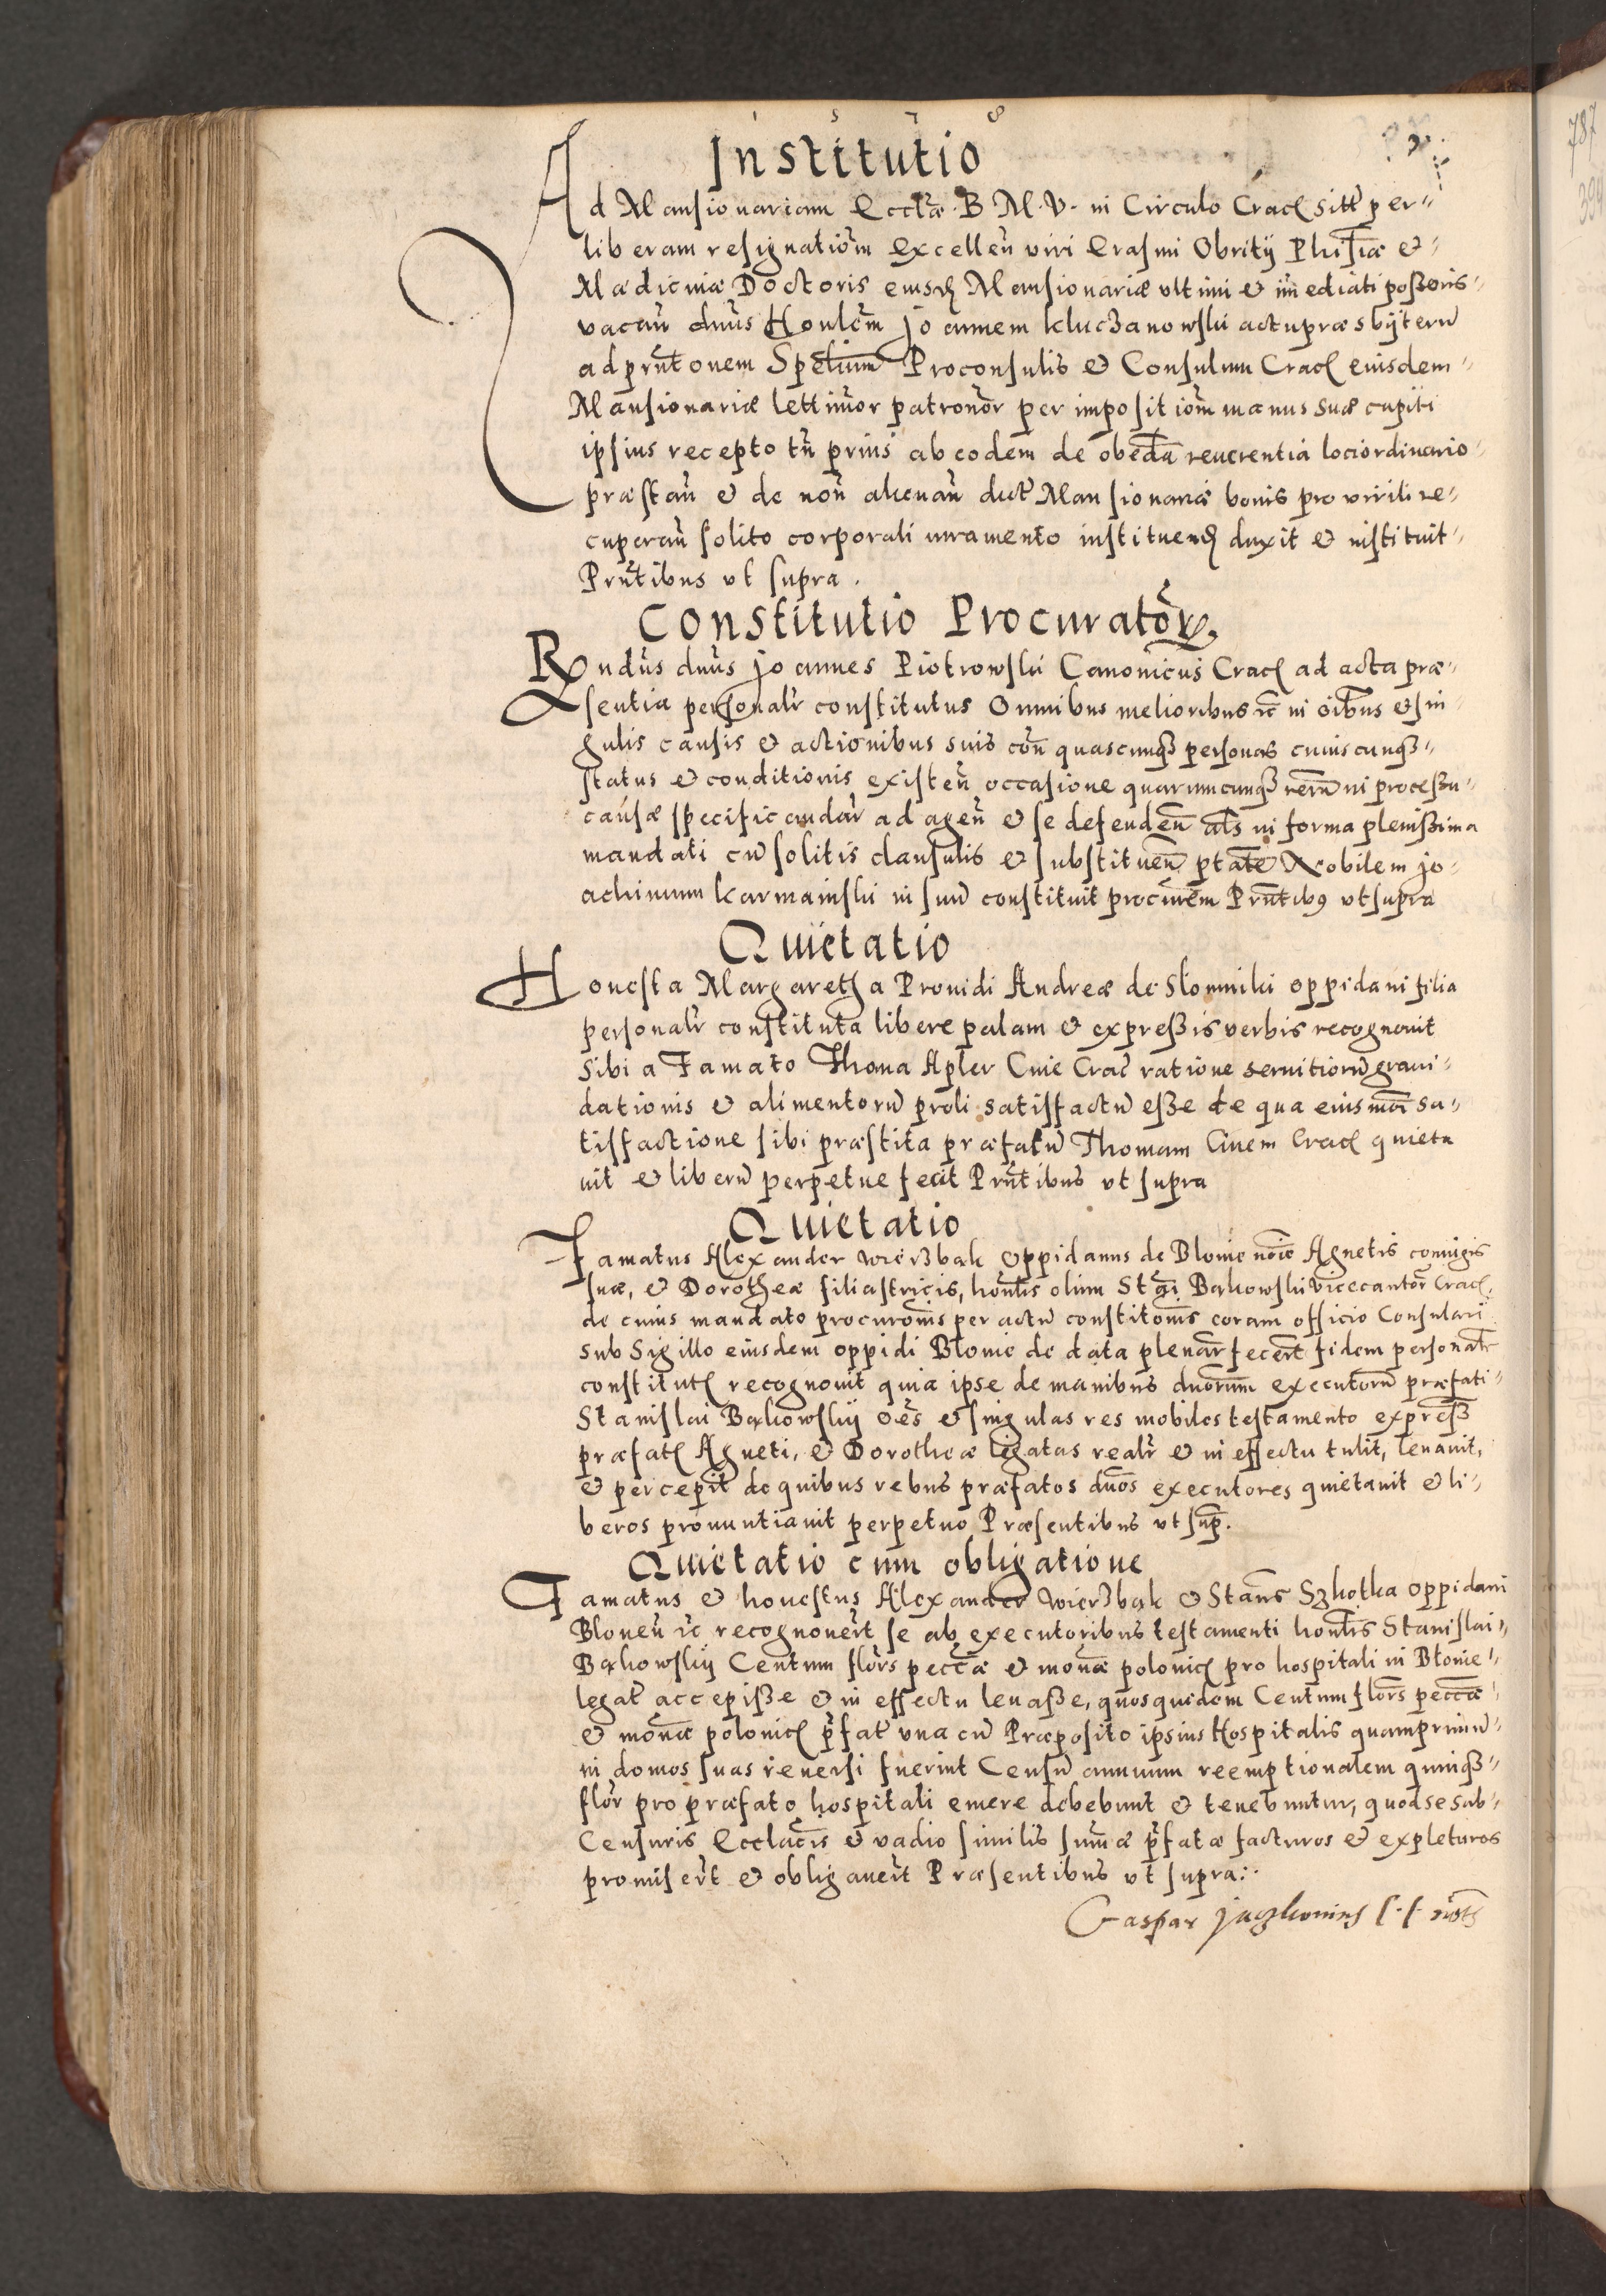 1 5 7 8
Institutio
Ad Mansionariam Eccliæ B. M. V. in Circulo Crac sitt per
liberam resignatiom Excellen viri Erasmi Obritij Phisiæ &
Mædicinæ Doctoris eiusd Mansionariæ vltimi & imediati possoris
vacan dnus Honlem Joannem Kluczanowski actu præsbyterū
ad prntonem Spetium Proconsulis & Consulum Crac eiusdem
Mansionariæ lettimor patronor per impositiom manus suæ capiti
ipsius recepto tn prius ab eodem de obeda reuerentia loci ordinario
præstan & de non alienan dict Mansionariæ bonis pro virili re
cuperan solito corporali iuramento instituend duxit & instituit
Prntibus vt supra.
Constitutio Procurator
Rndus dnus Joannes Piotrowski Canonicus Crac ad acta præ
sentia personalr constitutus Omnibus melioribus &c in oibus & sin
gulis causis & actionibus suis con quascunq personas cuiuscunq
status & conditionis existen occasione quarumcunq rerum in processu
causæ specificandar ad agen & se defenden als in forma plenissima
mandati cū solitis clausulis & substituen ptatem Nobilem Jo
achimum Karmainski in suū constituit procurem Prntibus vt supra
Quietatio
Honesta Margaretha Prouidi Andreæ de Slomniki oppidani filia
personalr constituta libere palam & expressis verbis recognouit
Sibi a Famato Thoma Apler Ciue Crac ratione seruitiorū graui
dationis & alimentorū proli satisfactū esse de qua eiusmoi sa
tisfactione sibi præstita præfatū Thomam Ciuem Crac quieta
uit & liberū perpetue fecit Prntibus vt supra
Quietatio
Famatus Alexander Wierzbak Oppidanus de Blonie noie Agnetis coniugis
suæ, & Dorotheæ filiastricis, hontis olim Stai Bakowski Vicecantor Crac
de cuius mandato procuronis per actū constitonis coram officio Consulari
sub Sigillo eiusdem oppidi Blonie de data plenar fecert fidem personalr
constitut recognouit quia ipse de manibus dnorum executorū præfati
Stanislai Bakowskij oes & singulas res mobiles testamento express
præfat Agneti, & Dorotheæ legatas realr & in effectu tulit, leuauit,
& percepit de quibus rebus præfatos dnos executores quietauit & li
beros pronuntiauit perpetuo Præsentibus vt sup.
Quietatio cum obligatione
Famatus & honestus Alexander Wierzbak & Stans Szkotka Oppidani
Blonen &c recognouert se ab executoribus testamenti hontis Stanislai
Bakowskij Centum flors peccæ & monæ polonic pro hospitali in Blonie
legat accepisse & in effectu leuasse, quosquidem Centum flors peccæ
& monæ polonic prfat vna cū Præposito ipsius Hospitalis quamprimū
in domos suas reuersi fuerint Censū annuum reemptionalem quinq
flor pro præfato hospitali emere debebunt & tenebuntur, quod se sab
Censuris Ecclacis & vadio similis sumæ prfatæ facturos & expleturos
promisert & obligauert Præsentibus vt supra:
Gaspar
787
399